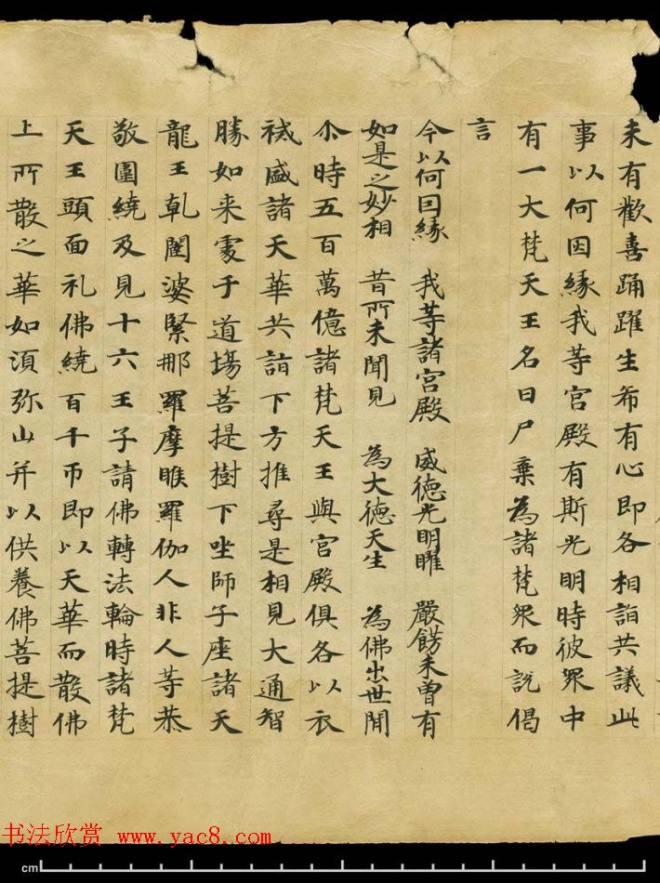 未有歡喜踊躍生希有心即各相詣共議此
事以何因緣我等宮殿有斯光明時彼眾中
有一大梵天王名曰尸棄為諸梵眾而說偈
言
今以何因緣 我等諸宮殿 威德光明曜 嚴餝未曾有
如是之妙相 昔所未聞見 為大德天生 為佛出世間
尒時五百萬億諸梵天王與宮殿俱各以衣
祴盛諸天華共詣下方推尋是相見大通智
勝如来處于道場菩提樹下坐師子座諸天
龍王乹闥婆緊那羅摩睺羅伽人非人等恭
敬圍繞及見十六王子請佛轉法輪時諸梵
天王頭面礼佛繞百千帀即以天華而散佛
上所散之華如須弥山并以供養佛菩提樹
书法欣赏 www.yac8.com
cm